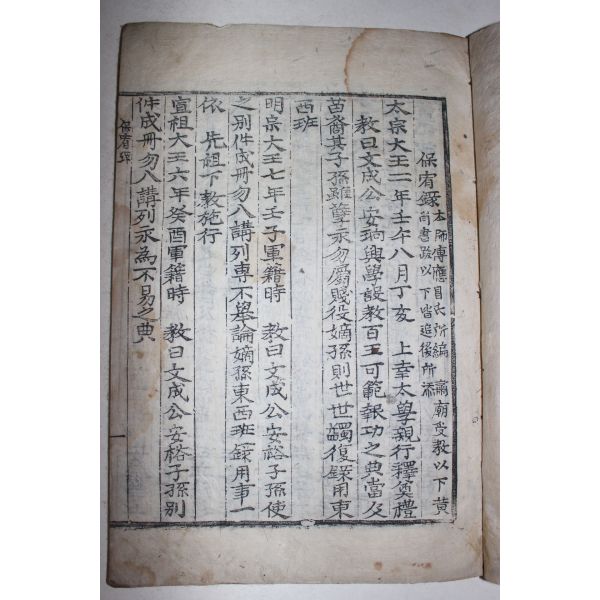 保宥錄
太師傅應昌氏所編 肅廟受教以下黃
尚書疏以下皆追後所添
太宗大王二年壬午八月丁亥 上幸太學親行釋奠禮
教曰文成公安珦興學設教百王可範報功之典當及
苗裔其子孫雖孽永勿屬賤役嫡孫則世世蠲復錄用東
西班
明宗大王七年壬子軍籍時 教曰文成公安裕子孫使
之別件成冊勿入講列專不舉論嫡孫東西班錄用事一
依 先祖下教施行
宣祖大王六年癸酉軍籍時 教曰文成公安裕子孫別
件成冊勿入講列永為不易之典
保宥錄 一